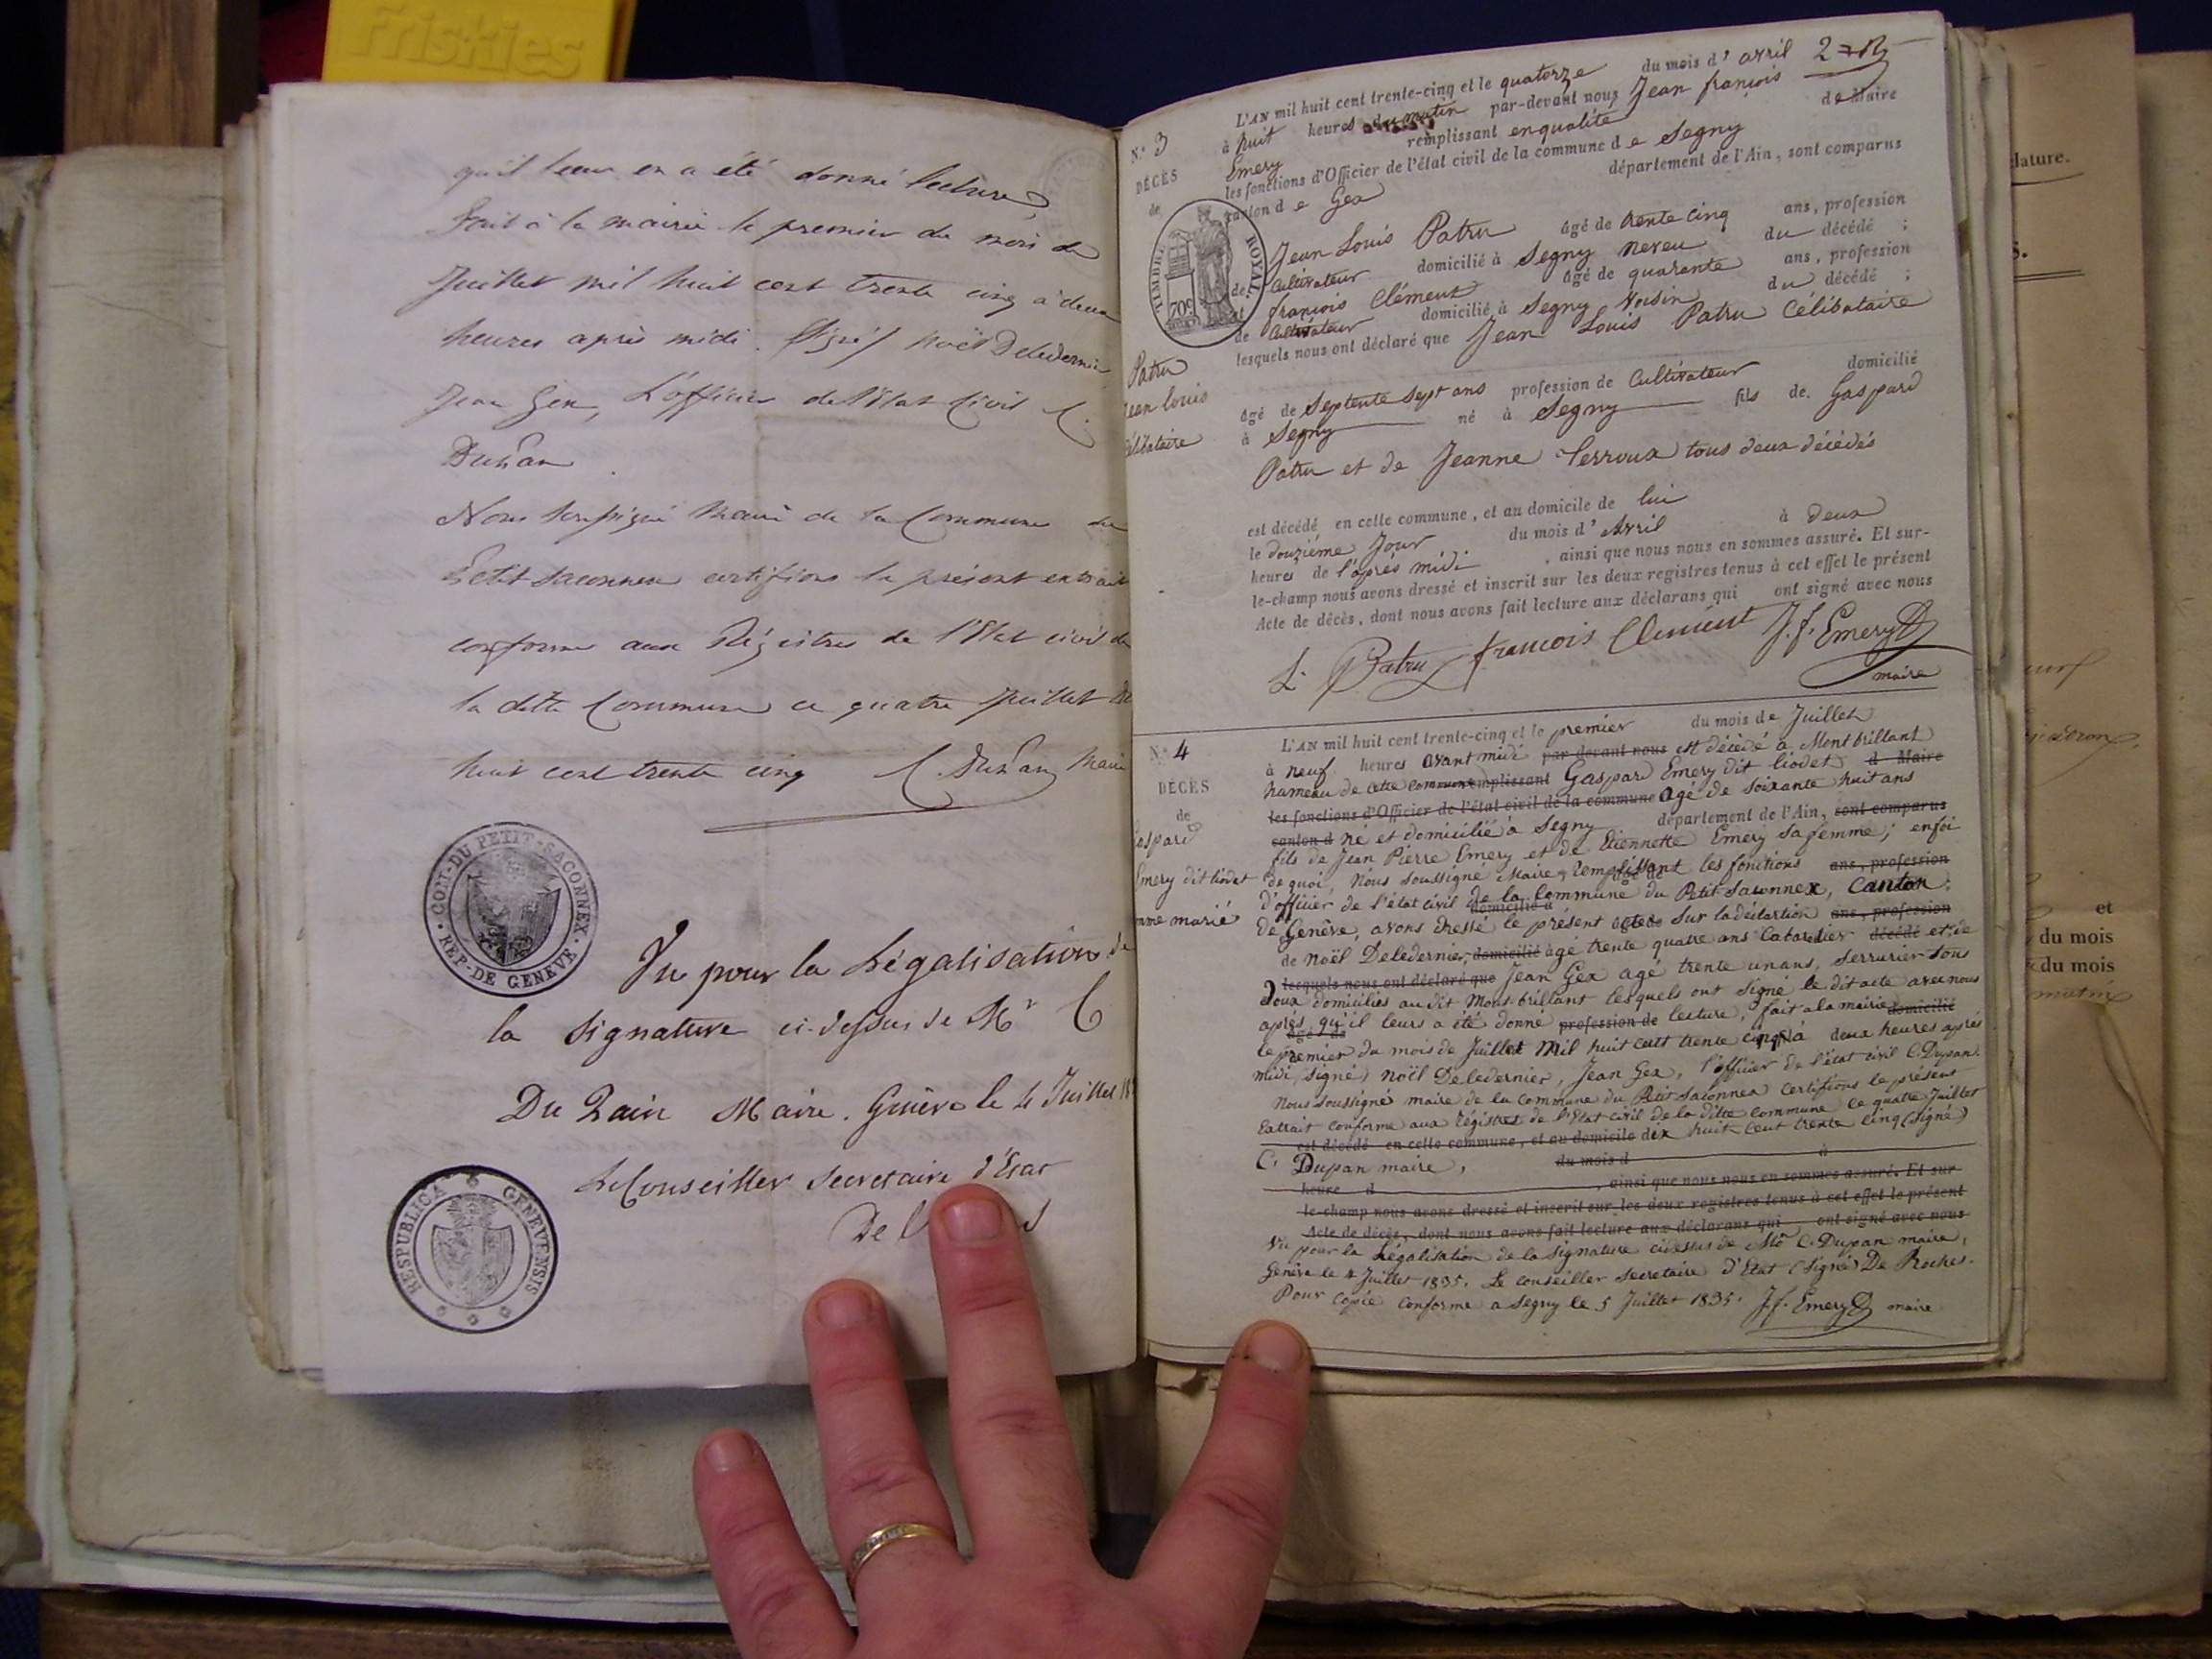 Friskies
qu'il leur en a été donné lecture,
Fait à la mairie le premier du mois de
Juillet mil huit cent trente cinq à deux
heures après midi. Signé/ Noël Deledernier
Jean Gex, L'officier de l'Etat Civil C.
Dupan
Nous soussigné Maire de la Commune du
Petit Saconnex certifions le présent extrait
conforme aux Régistres de l'Etat civil de
la ditte Commune ce quatre Juillet
huit cent trente cinq C. Dupan Maire
COM. DU PETIT-SACONNEX
REP. DE GENEVE
Vu pour la Légalisation de
la signature ci-dessus de Mr C
Du Pain Maire. Genève le 4 Juillet
Le Conseiller Secretaire d'Etat
De
RESPUBLICA GENEVENSIS
2
N.° 3
DÉCÈS
de
TIMBRE ROYAL
70c
Patru
Jean louis
Célibataire
L'AN mil huit cent trente-cinq et le quatorze du mois d' avril
à huit heures du matin par-devant nous Jean françois
Emery remplissant en qualité de Maire
les fonctions d'Officier de l'état civil de la commune d e Segny
canton d e Gex département de l'Ain, sont comparus
Jean Louis Patru âgé de trente cinq ans, profession
de Cultivateur domicilié à Segny neveu du décédé ;
et françois Clément âgé de quarante ans, profession
de Cultivateur domicilié à Segny Voisin du décédé ;
lesquels nous ont déclaré que Jean Louis Patru Célibataire
âgé de Septente Sept ans profession de Cultivateur domicilié
à Segny né à Segny fils de Gaspard
Patru et de Jeanne Perroux tous deux décédés
est décédé en cette commune, et au domicile de lui
le douzième Jour du mois d' Avril à deux
heures de l'après midi , ainsi que nous nous en sommes assuré. Et sur-
le-champ nous avons dressé et inscrit sur les deux registres tenus à cet effet le présent
Acte de décès, dont nous avons fait lecture aux déclarans qui ont signé avec nous
L. Patru françois Clement J.f. Emery
maire
N.° 4
DÉCÈS
de
Gaspard
Emery dit liodet
homme marié
L'AN mil huit cent trente-cinq et le premier du mois de Juillet
à neuf heures avant midi par-devant nous est décédé à Montbrillant
hameau de cette commune remplissant Gaspard Emery dit liodet d Maire
les fonctions d'Officier de l'état civil de la commune agé de soixante huit ans
canton d né et domicilié à Segny département de l'Ain, sont comparus
fils de Jean Pierre Emery et de Etiennette Emery sa femme; en foi
de quoi, Nous soussigné Maire, remplissant les fonctions ans, profession
d'officier de l'état civil de la Commune du Petit Saconnex, Canton
domicilié à
de Genève, avons dressé le présent acte sur la déclartion ans, profession
de Noël Deledernier, domicilié âgé trente quatre ans Cabaretier décédé et de
lesquels nous ont déclaré que Jean Gex agé trente un ans, serrurier tous
deux domiciliés au dit Mont-brillant lesquels ont signé le dit acte avec nous
après qu'il leurs a été donné profession de lecture, fait a la mairie domicilié
le premier du mois de Juillet Mil huit cent trente cinq à deux heures après
midi, signé) Noël Deledernier, Jean Gex, l'officier de l'état civil C. Dupan.
Nous soussigné maire de la Commune du Petit Saconnex Certifions le présent
Extrait Conforme aux régistres de l'Etat civil de la ditte Commune ce quatre Juillet
est décédé en cette commune, et au domicile dix huit Cent trente cinq (signé)
C. Dupan maire, du mois d à
heure d , ainsi que nous nous en sommes assuré. Et sur
le-champ nous avons dressé et inscrit sur les deux registres tenus à cet effet le présent
Acte de décès, dont nous avons fait lecture aux déclarans qui , ont signé avec nous
Vu pour la Légalisation de la signature cidessus de Mr C. Dupan maire,
Genève le 4 Juillet 1835. Le conseiller secretaire d'Etat (signé) De Roches.
Pour copie conforme a Segny le 5 Juillet 1835. J.f. Emery maire
et
du mois
du mois
matin